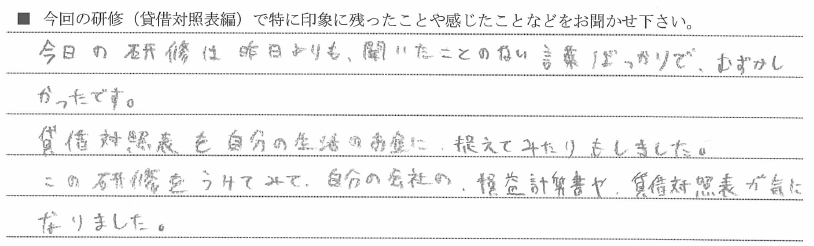 ■ 今回の研修（貸借対照表編）で特に印象に残ったことや感じたことなどをお聞かせ下さい。
今日の研修は昨日よりも、聞いたことのない言葉ばっかりで、むずかし
かったです。
貸借対照表を自分の生活のお金に、捉えてみたりもしました。
この研修をうけてみて、自分の会社の、損益計算書や、貸借対照表が気に
なりました。